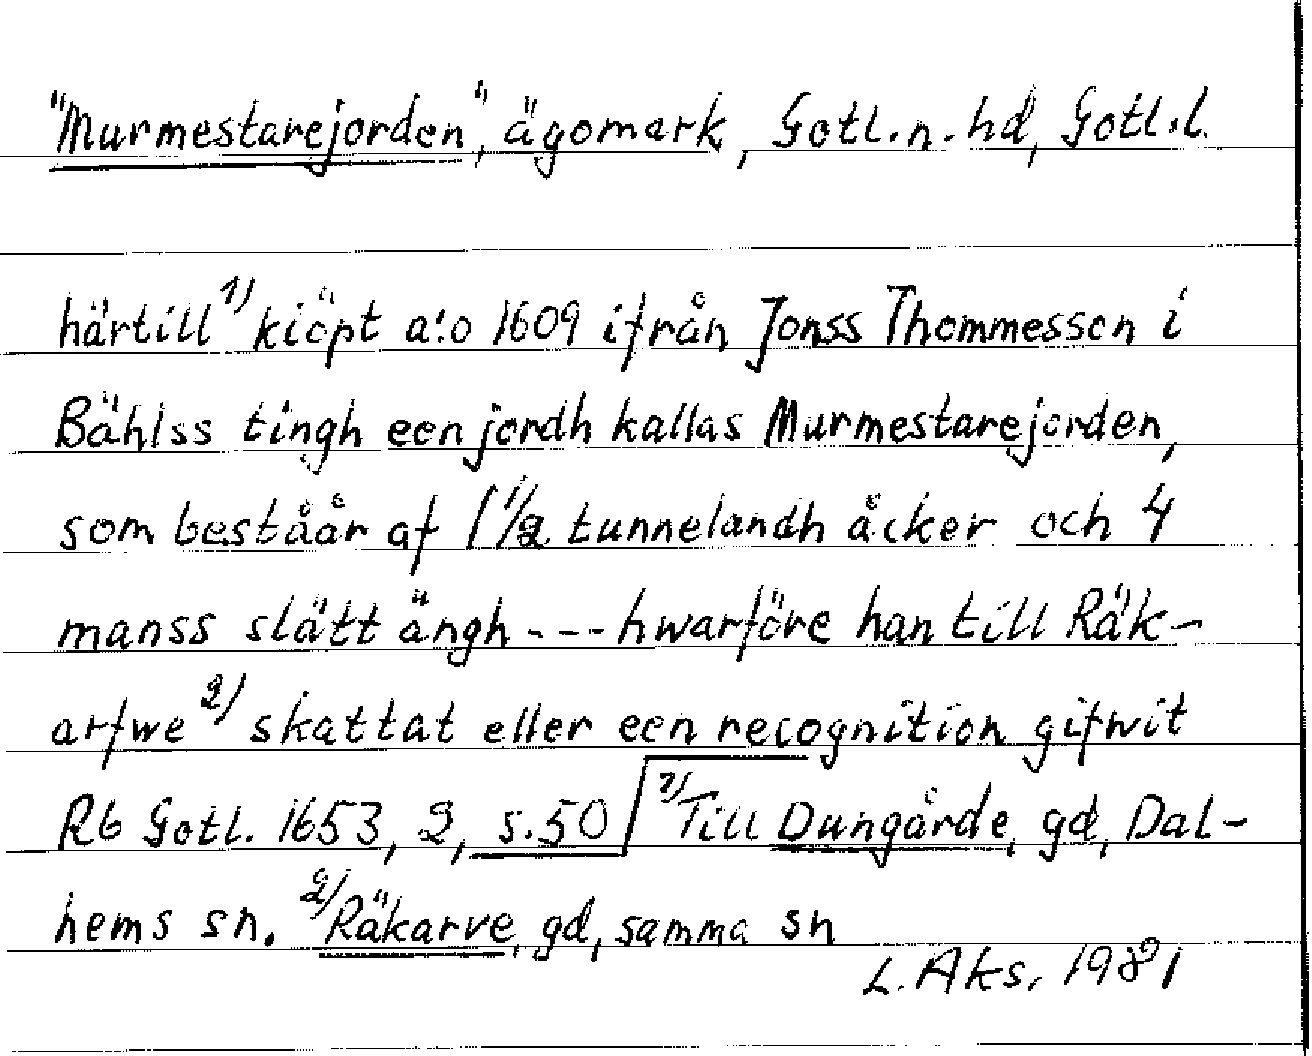 "Murmestarejorden", ägomark, Gotl.n.hd, Gotl.l.
härtill 1) kiöpt a:o 1609 ifrån Jonss Thommesson i
Bählss tingh een jordh kallas Murmestarejorden,
som beståår af 1 1/2 tunnelandh åcker och 4
manss slätt ängh --- hwarföre han till Räk-
arfwe 2) skattat eller een recognition gifwit
Rb Gotl. 1653, 2, s.50 1) Till Dungårde, gd, Dal-
hems sn. 2) Räkarve, gd, samma sn
L. Aks. 1981